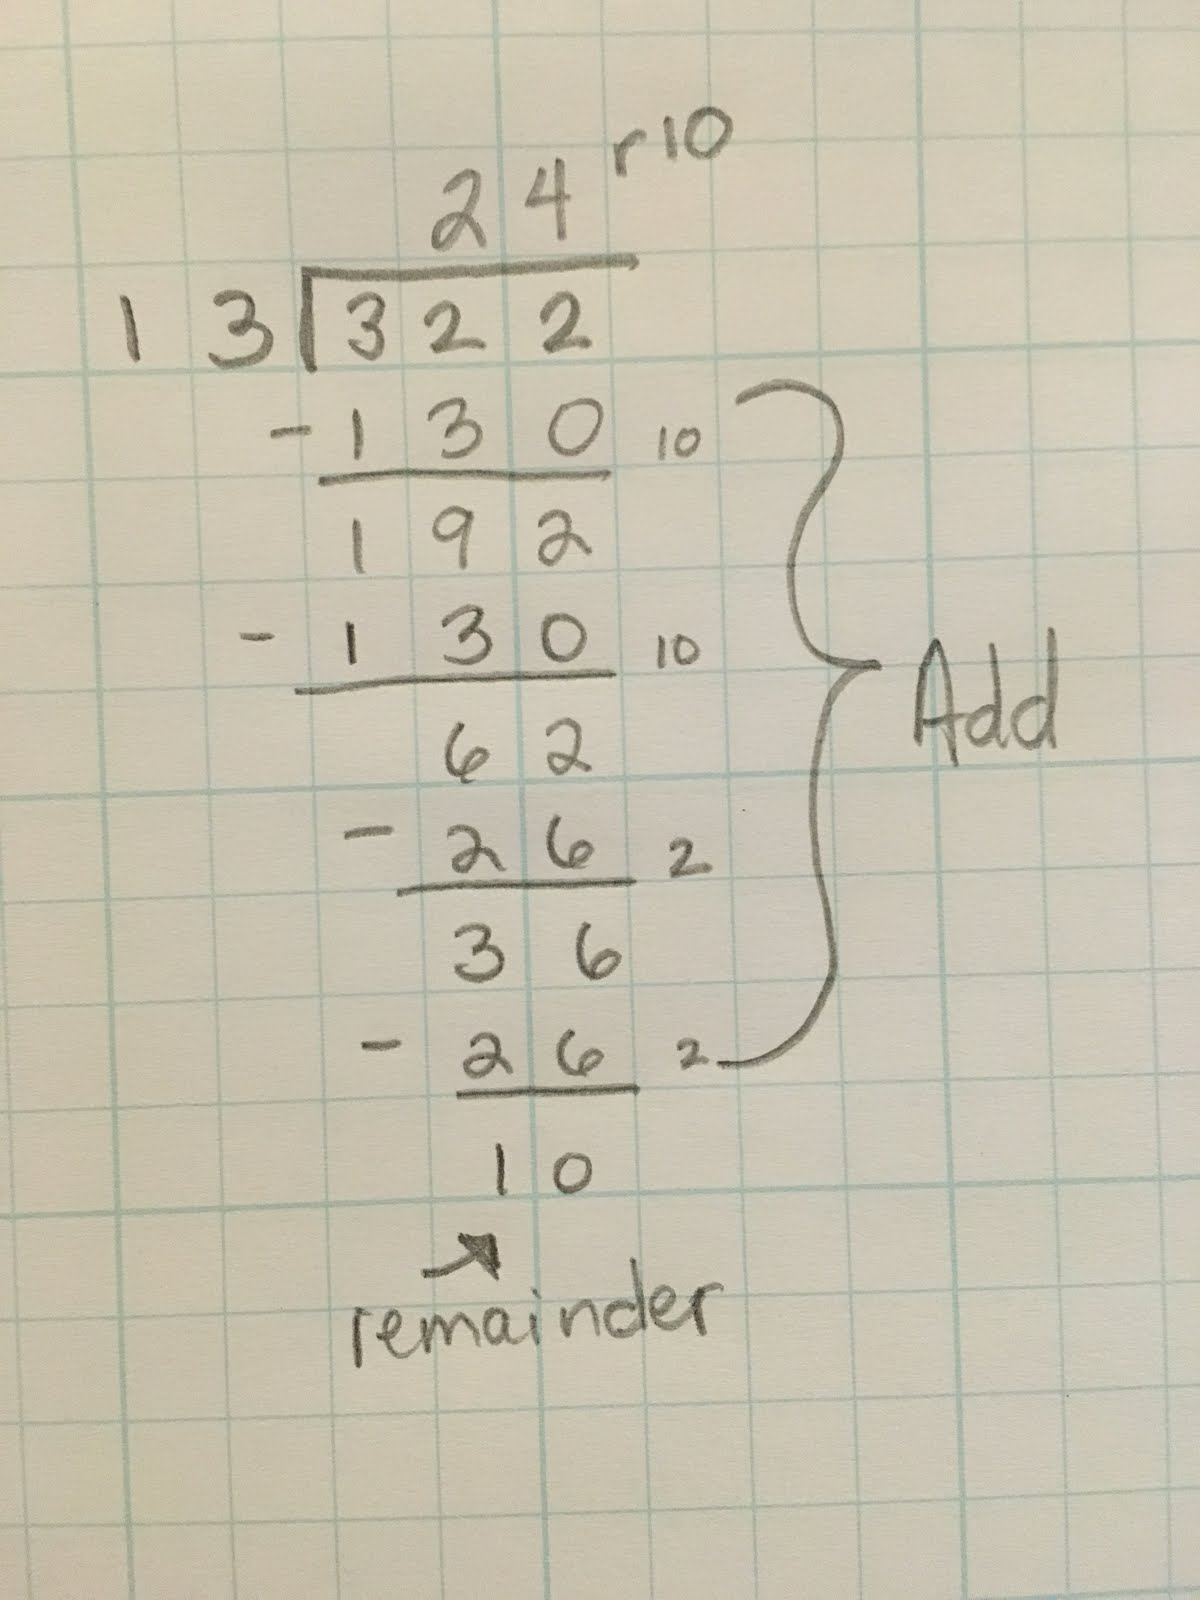 24 r10
13 322
-130 10
192
-130 10
Add
62
-26 2
36
-26 2
10
remainder